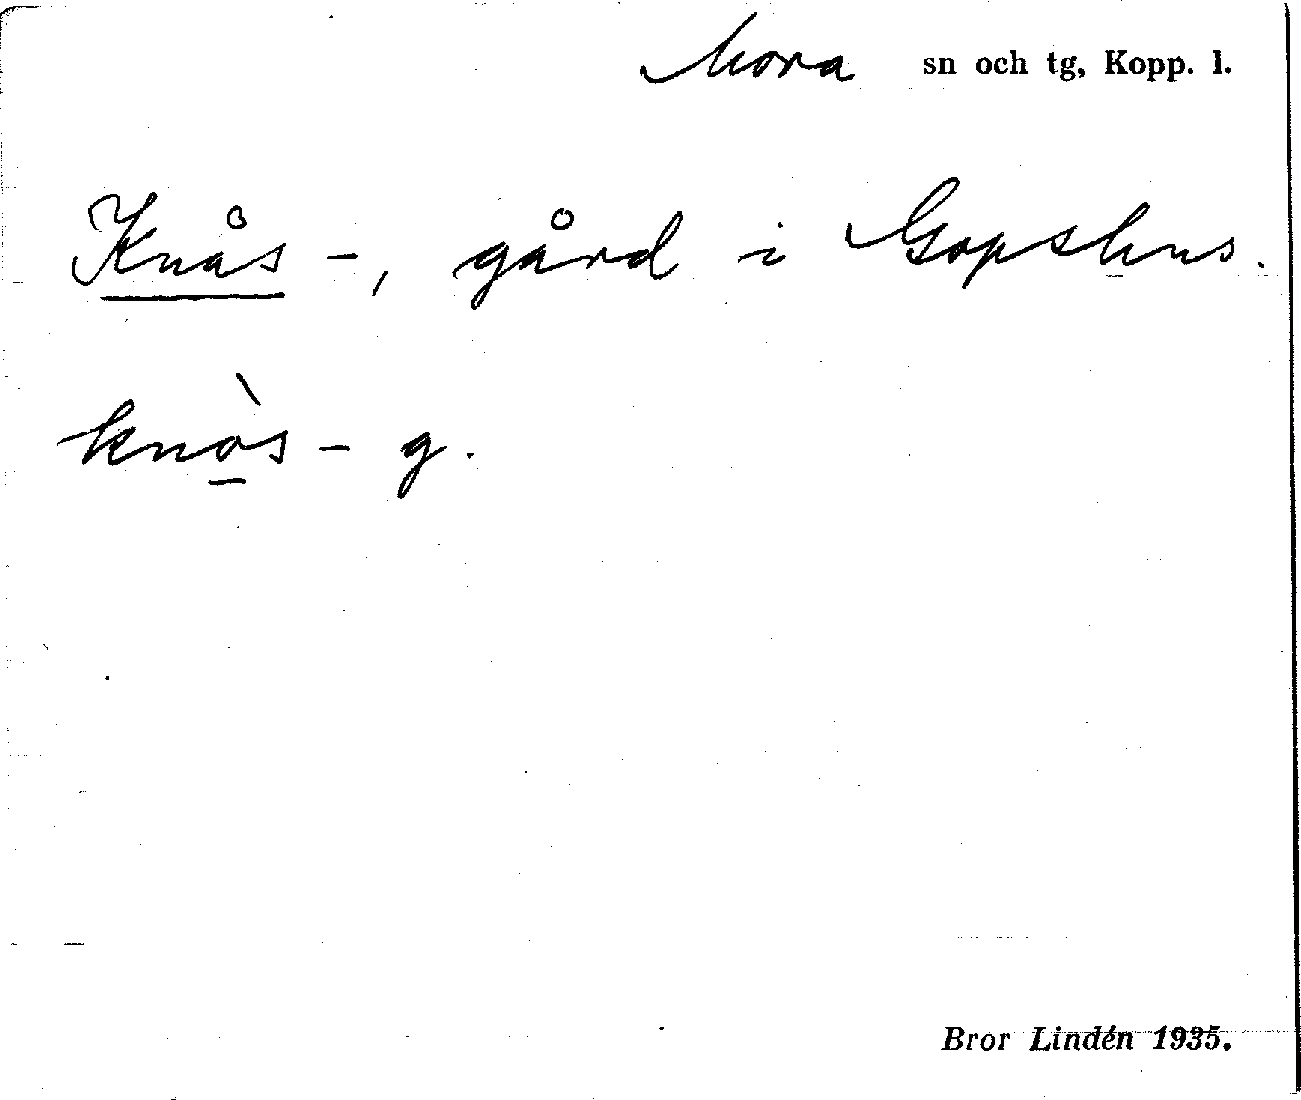 Mora sn och tg, Kopp. l.
Knås -, gård i Gopshus.
knò̲s - g.
Bror Lindén 1935.